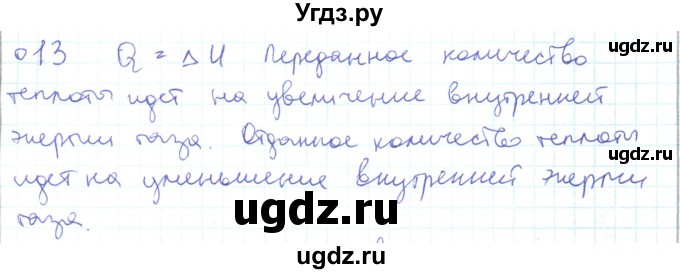 Угдз.ру
о13 Q = ΔU Переданное количество
теплоты идет на увеличение внутренней
энергии газа. Отданное количество теплоты
идет на уменьшение внутренней энергии
газа.
ugdz.ru
ugdz.ru
ugdz.ru
ugdz.ru
ugdz.ru
ugdz.ru